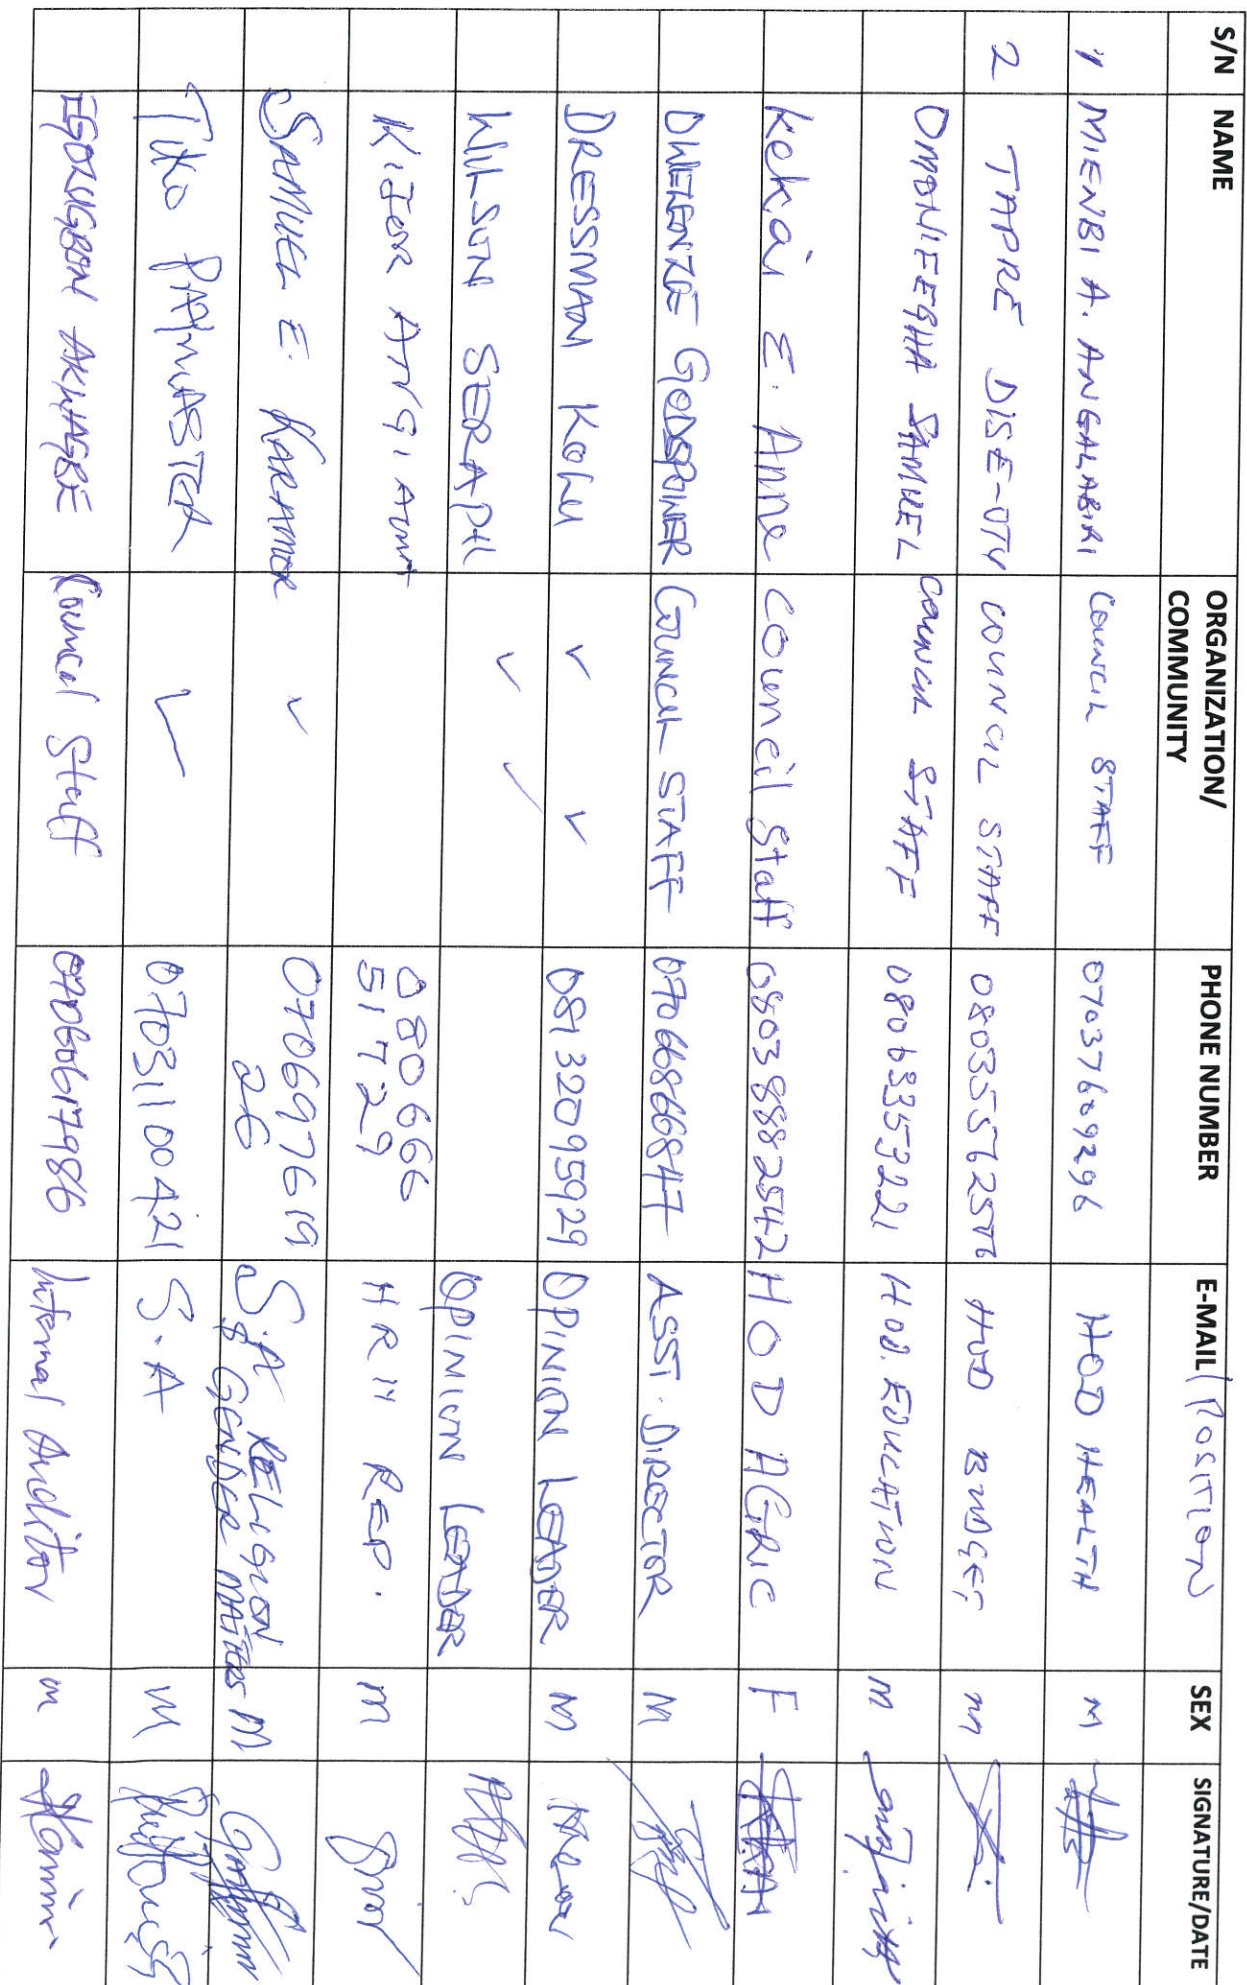 S/N NAME ORGANIZATION/ COMMUNITY PHONE NUMBER E-MAIL/POSITION SEX SIGNATURE/DATE
1 MIENBI A. ANGALABIRI COUNCIL STAFF 07037609296 HOD HEALTH M
2 TAPRE DISE-OTU COUNCIL STAFF HOD BUDGET m
OMONIEEGHA SAMUEL COUNCIL STAFF 08063353221 HOD. EDUCATION M
Kekai E. Anna Council Staff 08038882542 HOD AGRIC F
GODSPOWER COUNCIL STAFF 07066866847 ASST. DIRECTOR M
DRESSMAN KOLU ✓ ✓ 08132095929 OPINION LEADER M
WILSON SERAPH ✓ ✓ OPINION LEADER
KIJOR 080666 HRH REP. m
51729
SAMUEL E. ✓ 070697619 S.A RELIGION
26 & GENDER MATTERS M
TIKO PAYMASTER ✓ 07031100421 S.A M
AKWAGBE Council Staff 07060617986 Internal Auditor m